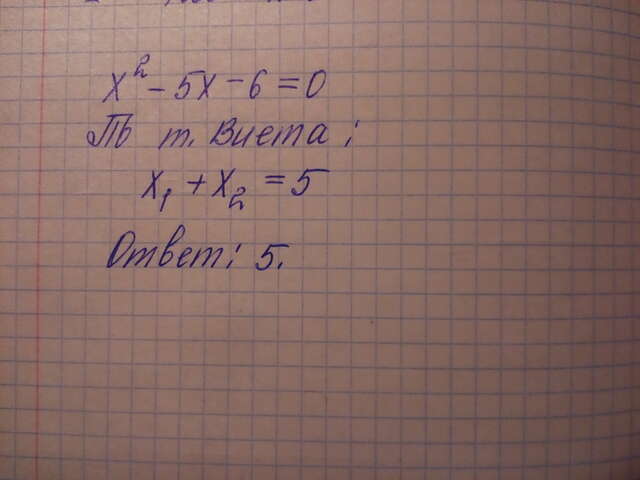 x² - 5x - 6 = 0
По т. Виета:
x₁ + x₂ = 5
Ответ: 5.